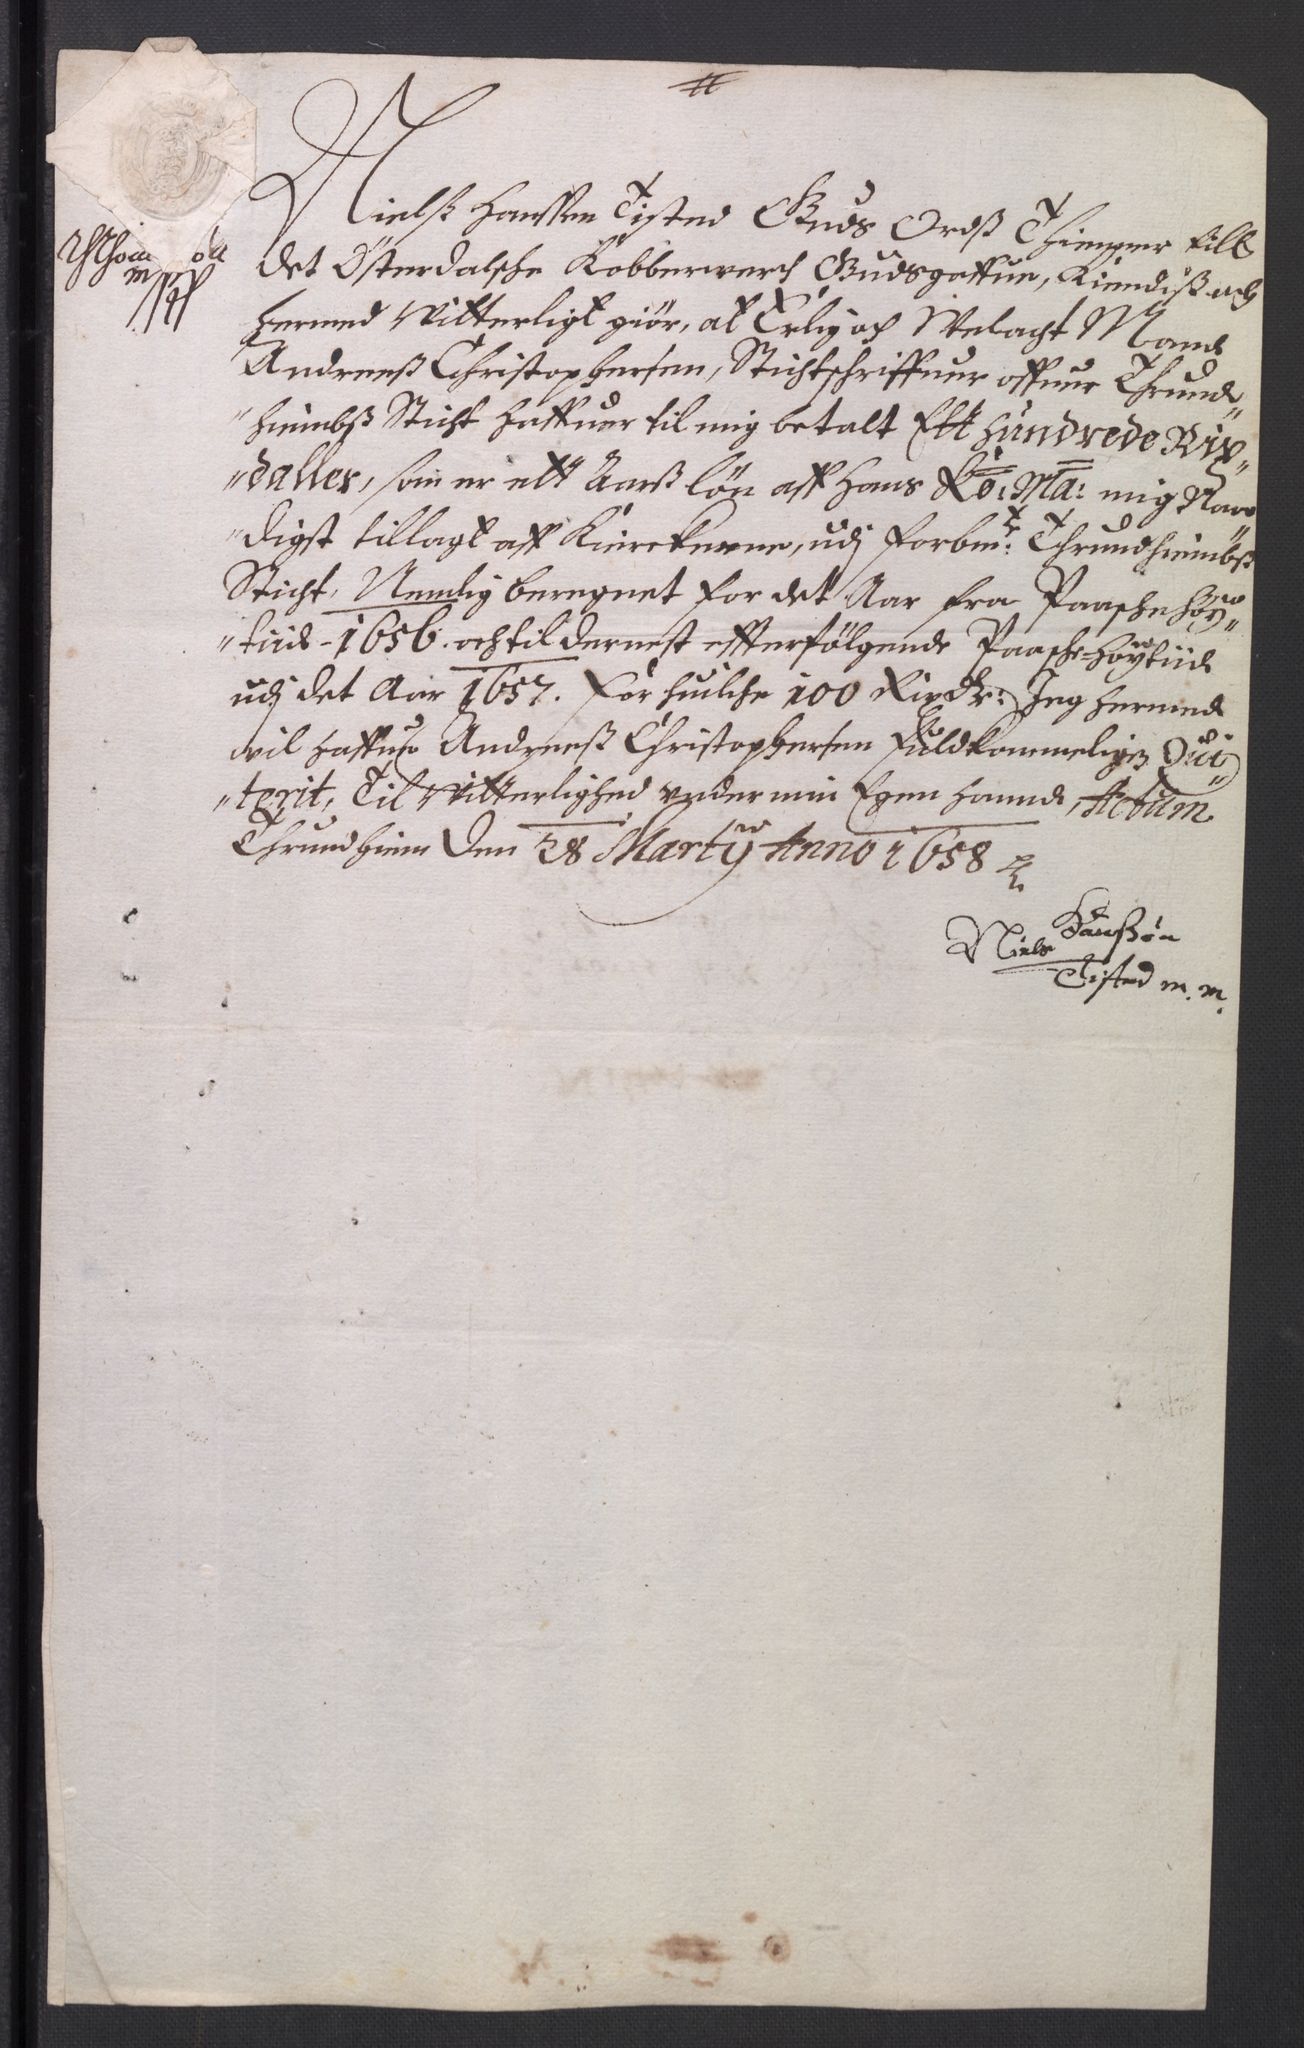 Nielß Hanssen Tisted Guds Ordß Thienner till
det Österdalsche Kobberwerch Gudsgaffue, Kiendiß och
hermed Witterligt giör, at Erlig och Welacht Mand
Andreeß Christophersen, Stichtschriffuer offuer Thrund„
„hiembß Sticht haffuer til mig betalt Ett hundrede Rix„
„daller, som er ett Aarß lön aff Hans Ko: Ma: mig Naa„
„digst tillagt aff Kierckerne, udj forbem:te Thrundhiembß
Sticht, Nemlig beregnet for det Aar fra Paasche höy„
„tiid 1656. och til dernest effterfölgende Paasche-höytiid
udj det Aar 1657. for huilche 100 Rixdr: Jeg hermed
vil haffue Andreeß Christophersen fuldkommeligen Qui„
„terit, Til Witterlighed under min Egen Haand, Actum
Thrundhiem Den 28 Martij Anno 1658
Niels Hanßøn
Tisted m. m.